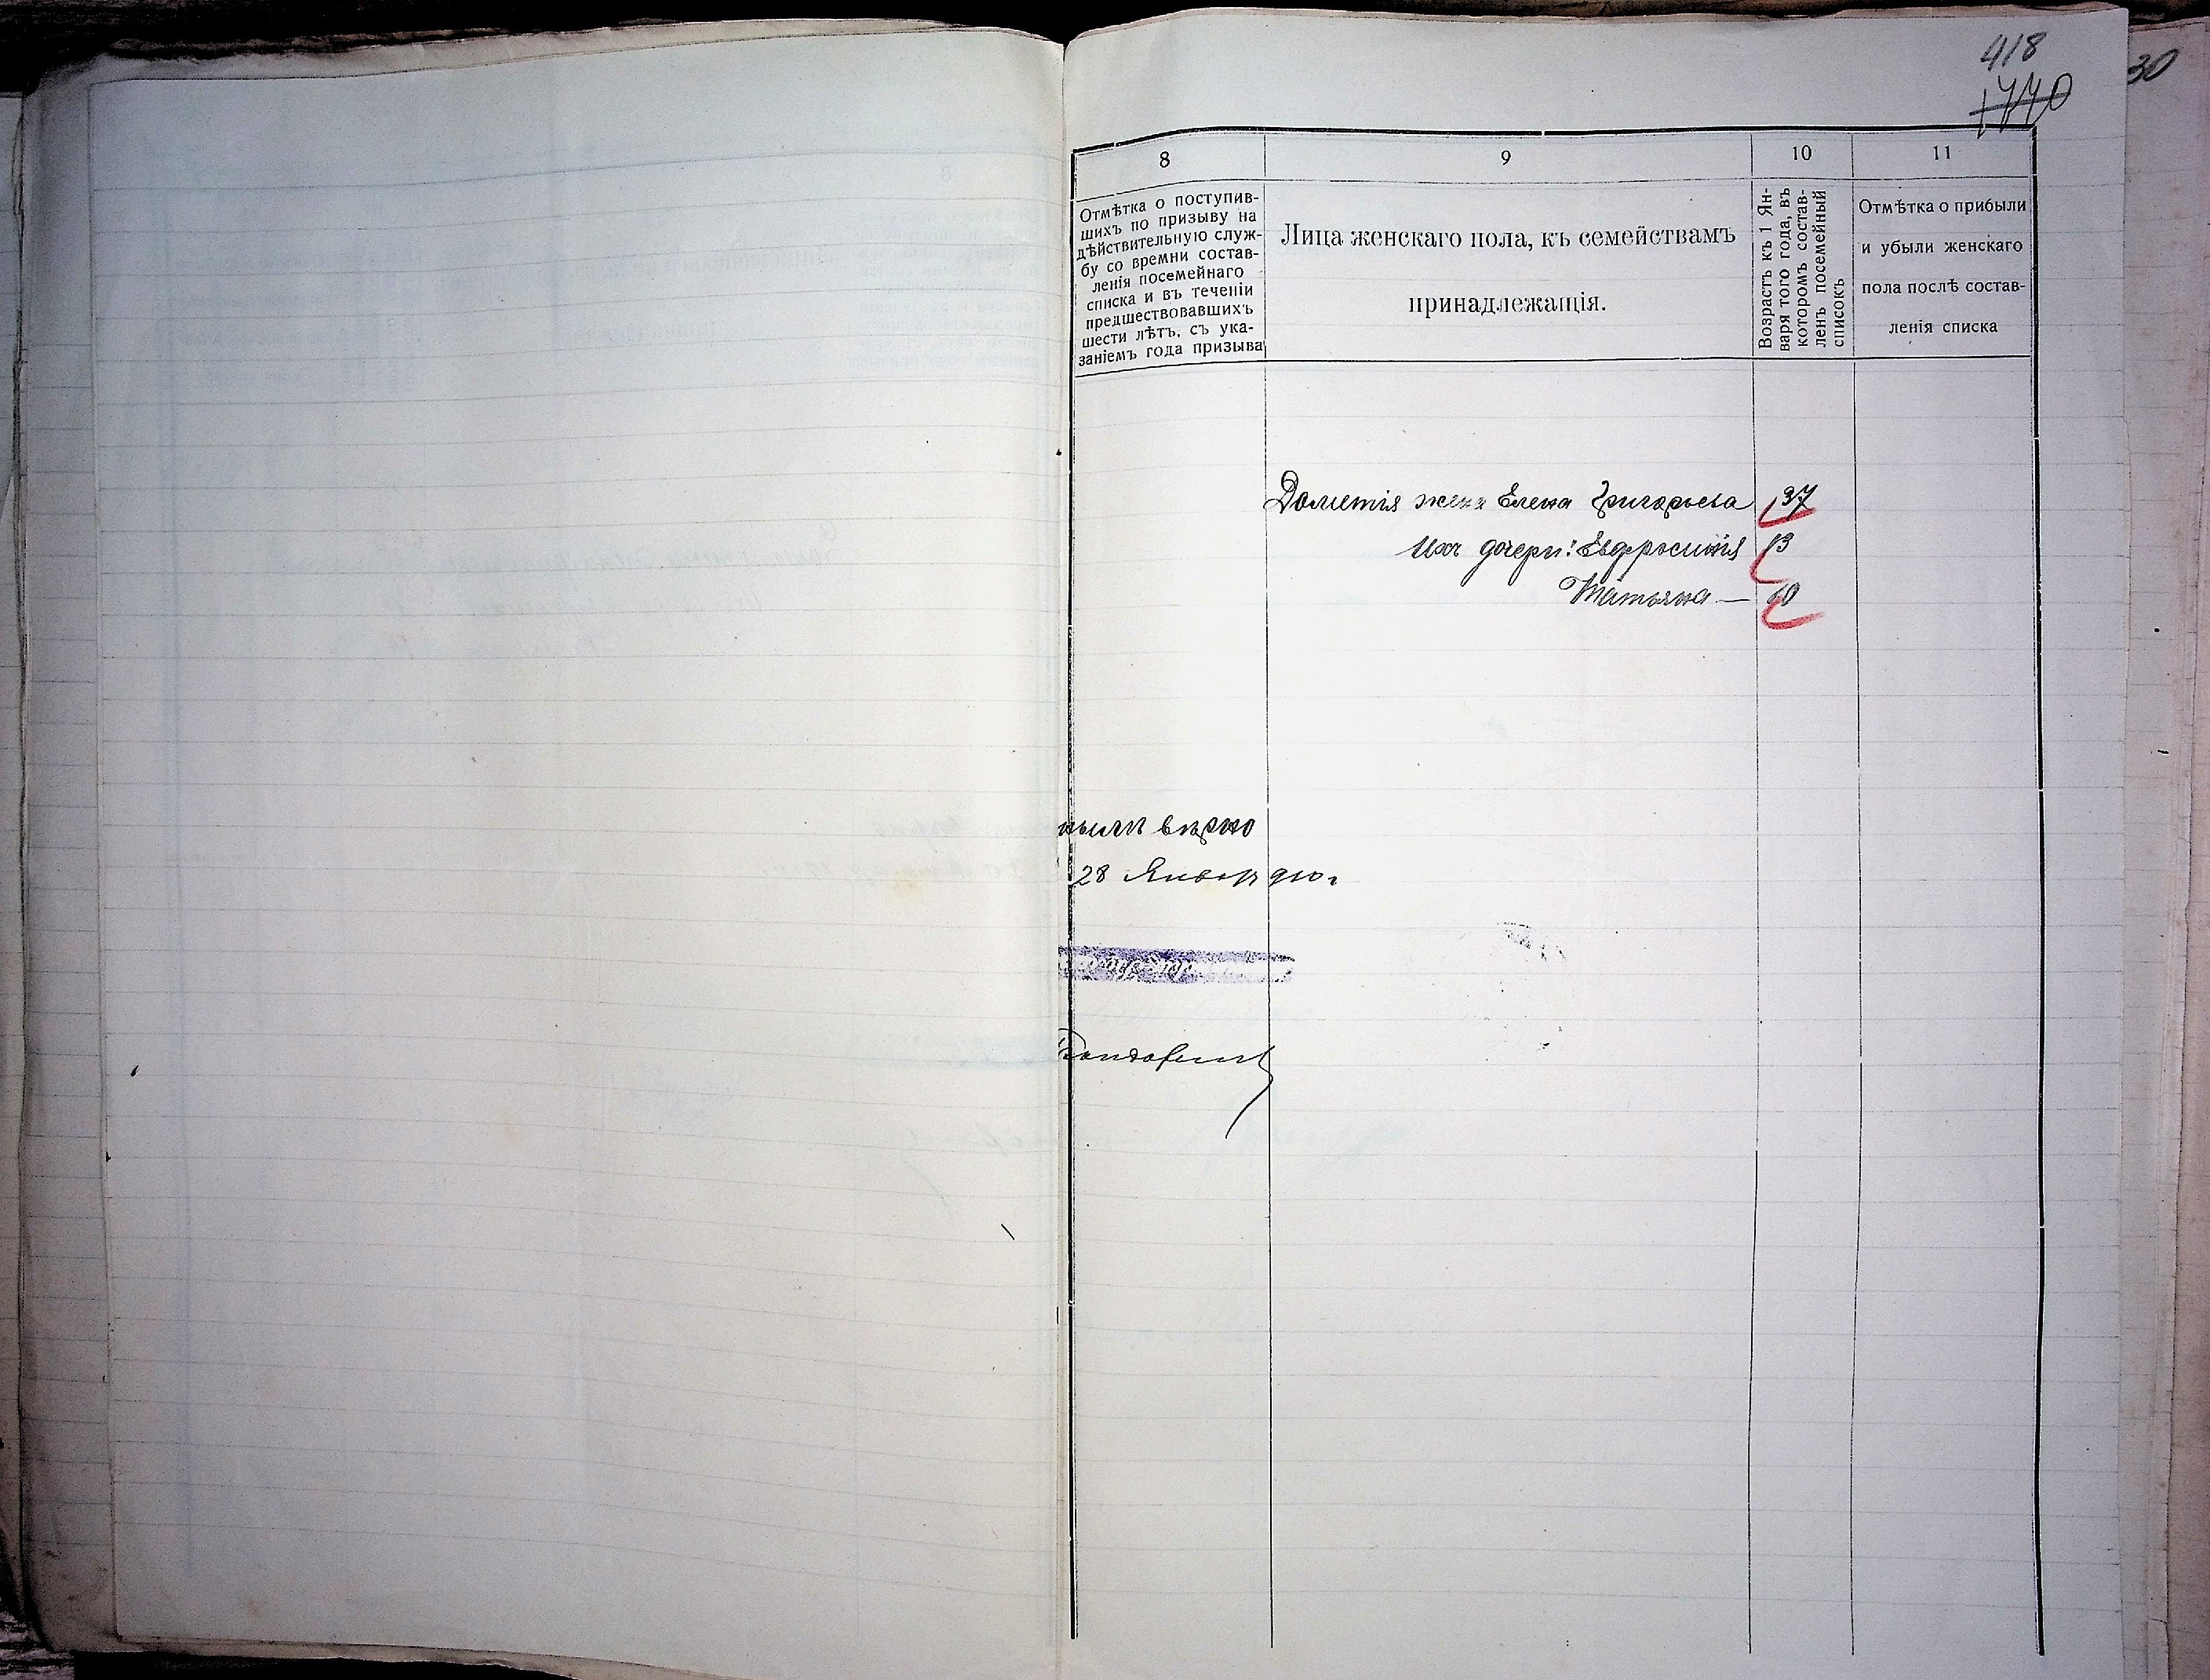 418
1770
30
8
9
10
11
Отмѣтка о поступив-
шихъ по призыву на
дѣйствительную служ-
бу со времни состав-
ленія посемейнаго
списка и въ теченіи
предшествовавшихъ
шести лѣтъ, съ ука-
заніемъ года призыва
Лица женскаго пола, къ семействамъ
принадлежащія.
Возрастъ къ 1 Ян-
варя того года, въ
которомъ состав-
ленъ посемейный
списокъ
Отмѣтка о прибыли
и убыли женскаго
пола послѣ состав-
ленія списка
Дометія жена Елена Григорьева 37
Ихъ дочери: Евфросинія 13
Татьяна — 10
нымъ вѣрно
28 Января 910 г